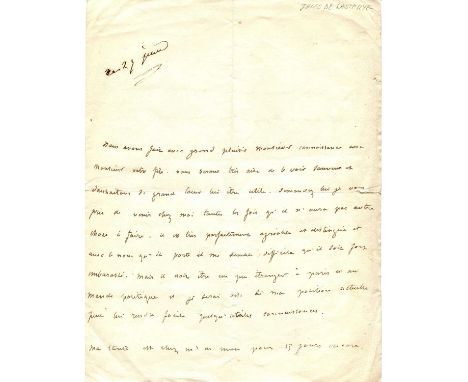 JULES DE LASTEYRIE
ce 27 juin
Nous avons fait avec grand plaisir Monsieur connaissance avec
Monsieur votre fils. nous serons très aise de le voir souvent et
de grand cœur lui être utile. demandez lui je vous
prie de venir chez moi toutes les fois qu'il n'aura pas autre
chose à faire. il est très parfaitement agréable et distingué et
avec le nom qu'il porte il me semble difficile qu'il soit jamais
embarassé. mais il doit être un peu étranger à paris et au
monde politique et je serai si ma position actuelle
peut lui rendre facile quelqu'utiles connaissances.
Ma tante est chez m' pour 15 jours encore